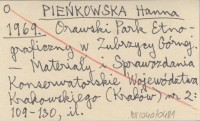 O
PIEŃKOWSKA Hanna
1969. Orawski Park Etno-
graficzny w Zubrzycy Górnej.
— Materiały i Sprawozdania
Konserwatorskie Województwa
Krakowskiego (Kraków) nr 2:
109-130, il.